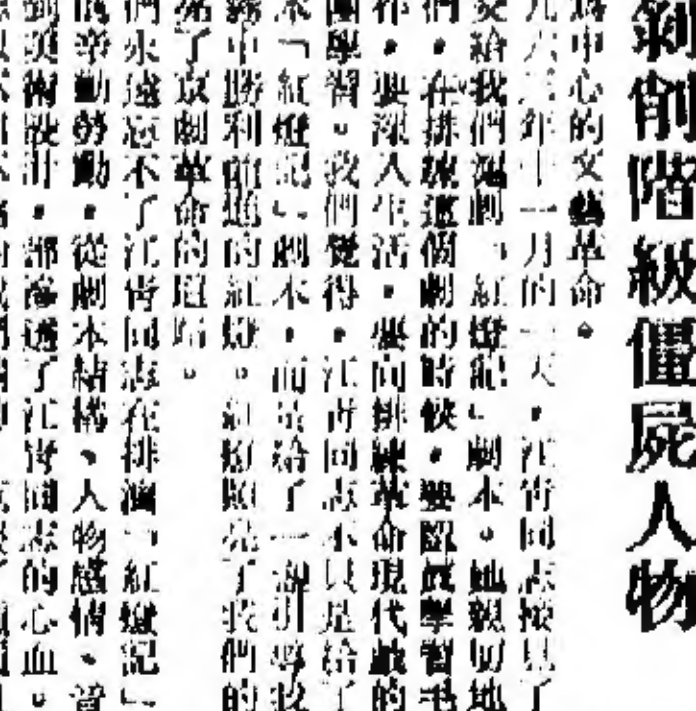 剝削階級僵屍人物
為中心的文藝革命。
九六三年十一月的一天，江青同志接見了
交給我們滬劇「紅燈記」劇本。她親切地
們，在排演這個劇的時候，要認真學習毛
作，要深入生活，要向排練革命現代戲的
團學習。我們覺得，江青同志不只是給了
本「紅燈記」劇本，而是給了一盞引導我
霧中勝利前進的紅燈。紅燈照亮了我們的
了京劇革命的道路。
們永遠忘不了江青同志在排演「紅燈記」
的辛勤勞動，從劇本結構、人物感情、音
到美術設計，都滲透了江青同志的心血。